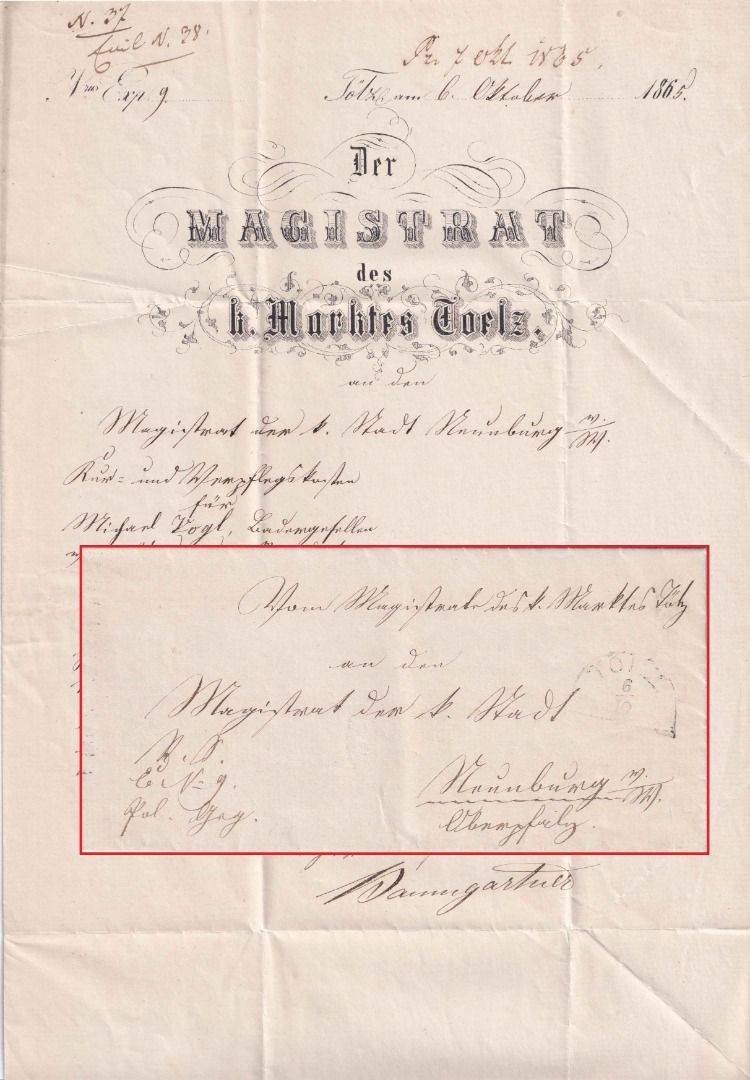 N. 37
N. 38.
Pr. 7 Okt 1865.
Exp. 9.
Tölz, am 6. Oktober 1865.
Der
MAGISTRAT
des
k. Marktes Toelz.
an den
Magistrat der k. Stadt Neunburg v./W.
Kur- und Verpflegskosten
für
Michael Vogl, Badergesellen
Vom Magistrate des k. Marktes Tölz
an den
Magistrat der k. Stadt
R. S.
E. No 9.
Neunburg v./W.
Pol. Geg.
Oberpfalz.
Baumgartner